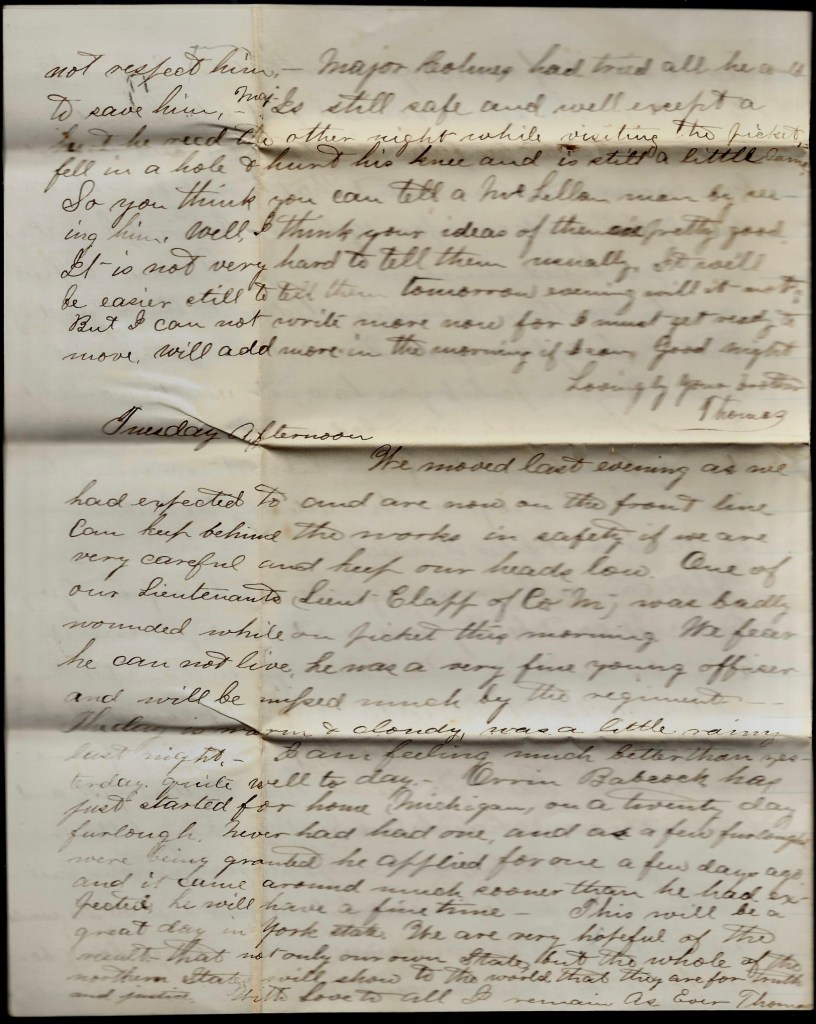 not respect him, – Major Holmes had tried all he could
to save him, – Maj. Is still safe and well except a
hurt he recd the other night while visiting the picket,
fell in a hole & hurt his knee and is still a little lame,
So you think you can tell a McLellan man by see-
ing him. Well, I think your ideas of them are pretty good.
It is not very hard to tell them usually. It will
be easier still to tell them tomorrow evening will it not?
But I can not write more now for I must get ready to
move, will add more in the morning if I can, Good night
Lovingly Your brother
Thomas
Tuesday Afternoon
We moved last evening as we
had expected to and are now on the front line
Can keep behind the works in safety if we are
very careful and keep our heads low. One of
our Lieutenants Lieut Clapp of Co "M", was badly
wounded while on picket this morning We fear
he can not live, he was a very fine young officer
and will be missed much by the regiment –
The day is warm & cloudy, was a little rainy
last night. – I am feeling much better than yes-
terday. quite well to day. – Orrin Babcock has
just started for home Michigan, on a twenty day
furlough. Never had had one, and as a few furloughs
were being granted he applied for one a few days ago
and it came around much sooner than he had ex-
pected, he will have a fine time – This will be a
great day in York state. We are very hopeful of the
result that not only our own State, but the whole of the
northern States will show to the world that they are for truth
and justice. With Love to all I remain As Ever Thomas